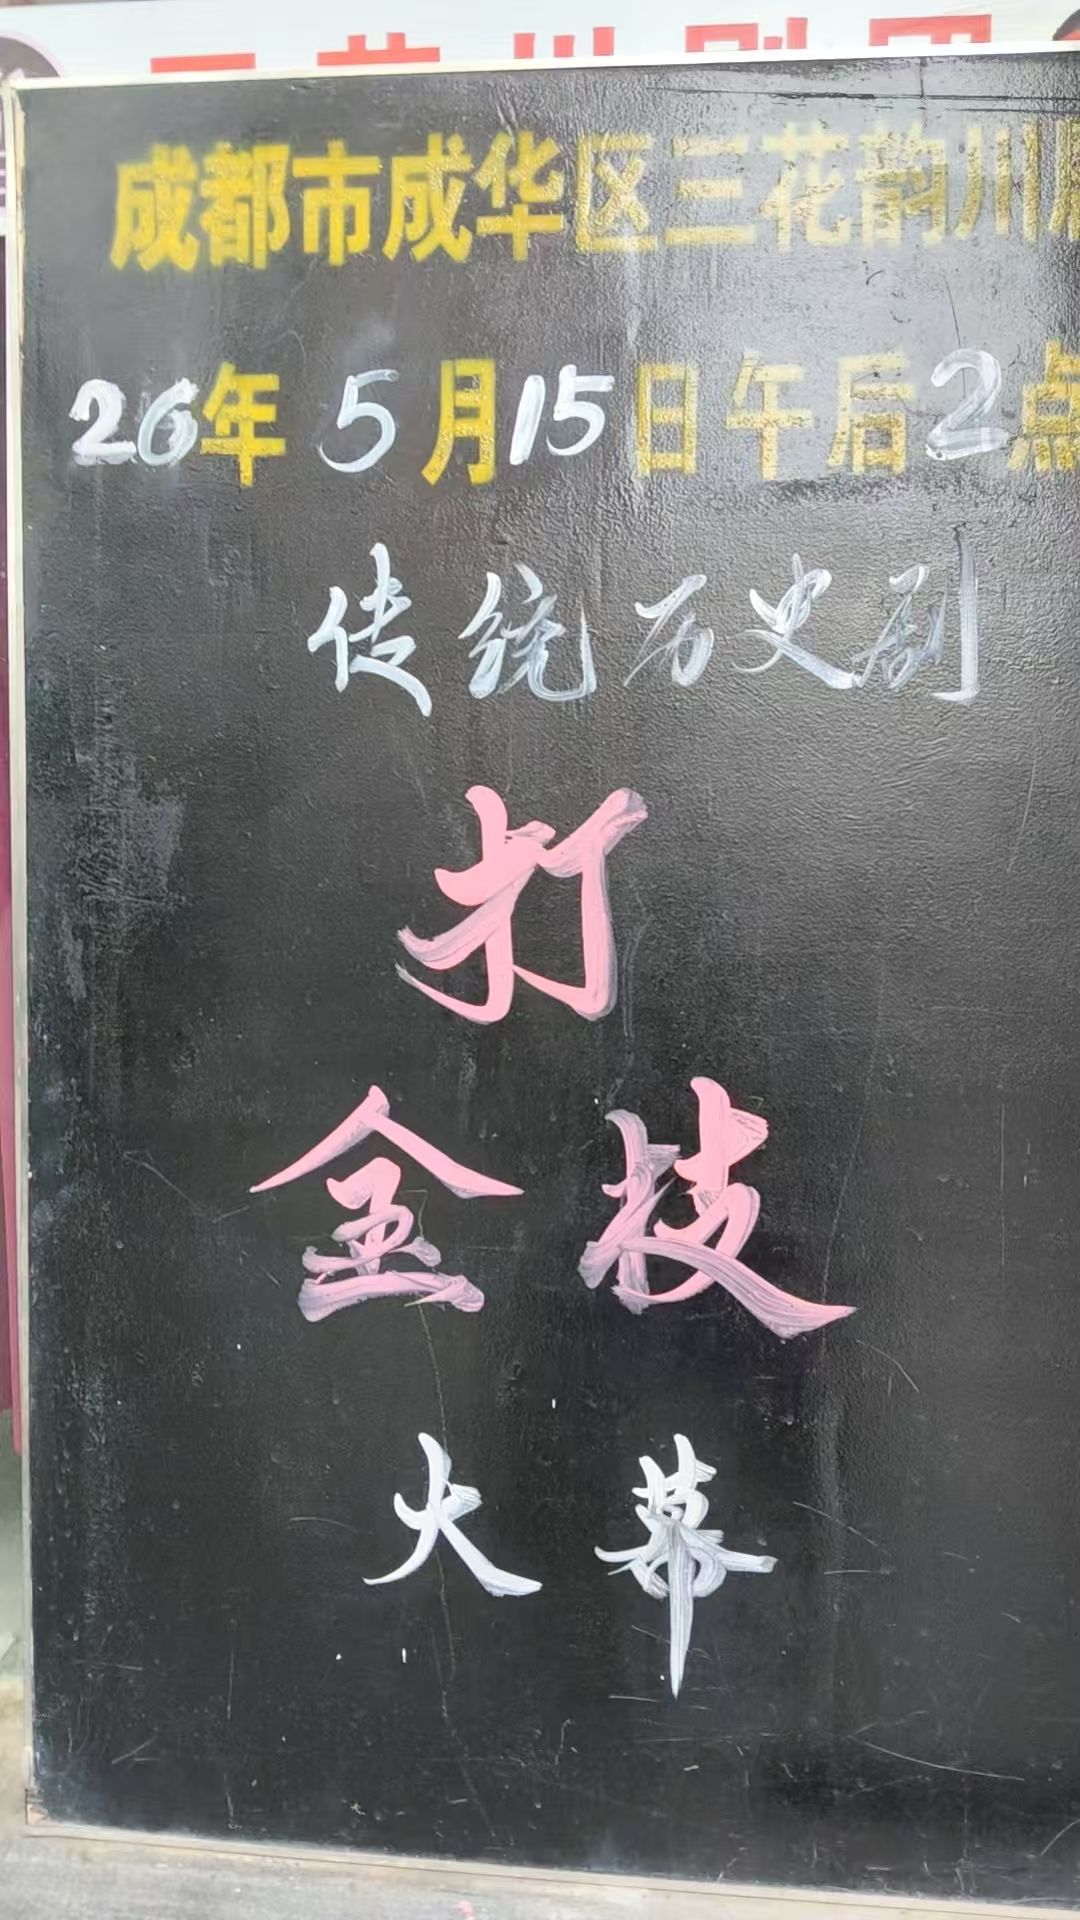 成都市成华区三花韵川
26年5月15日午后2点
传统历史剧
打
金枝
大幕